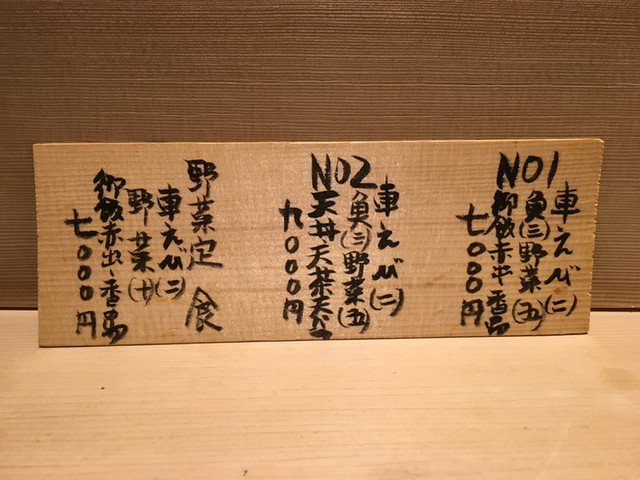 NO1
車えび(二)
魚(三)野菜(五)
御飯赤出香品
七000円
NO2
車えび(二)
魚(三)野菜(五)
天丼、天茶
九000円
野菜定食
車えび(二)
野菜(十)
御飯赤出、香品
七000円